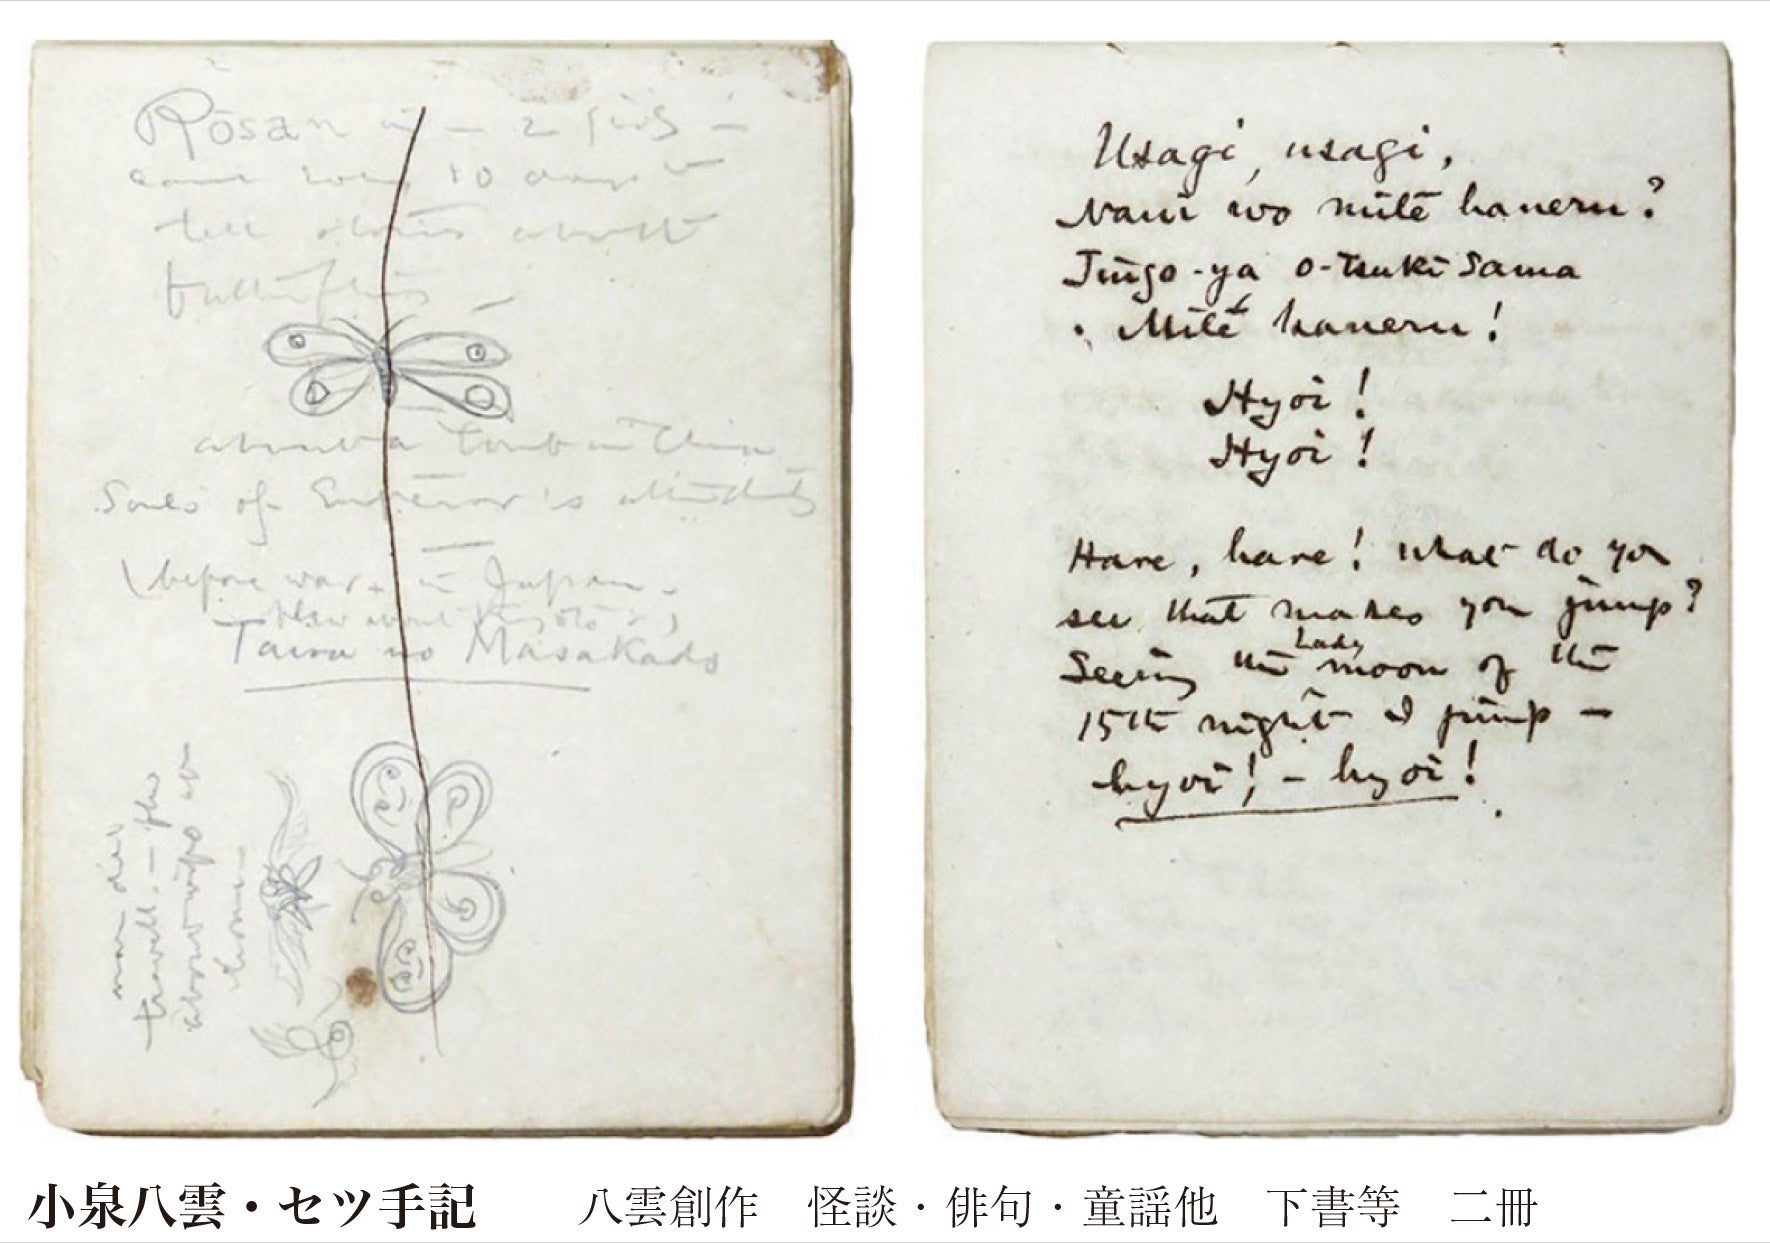 Rōsan in — 2 girls —
came 10 days
tell stories about
butterflies —
about a tomb in China
Souls of Emperor's attendants
(before war in Japan.
How about Kyōto?)
Taira no Masakado
man died
travell. —
wife
home —
Usagi, usagi,
Nani wo mitē haneru?
Jūgo-ya o-tsuki sama
Mitē haneru!
Hyoi!
Hyoi!
Hare, hare! what do you
see that makes you jump?
Seeing the Lady moon of the
15th night I jump —
hyoi! — hyoi!
小泉八雲・セツ手記　八雲創作　怪談・俳句・童謡他　下書等　二冊